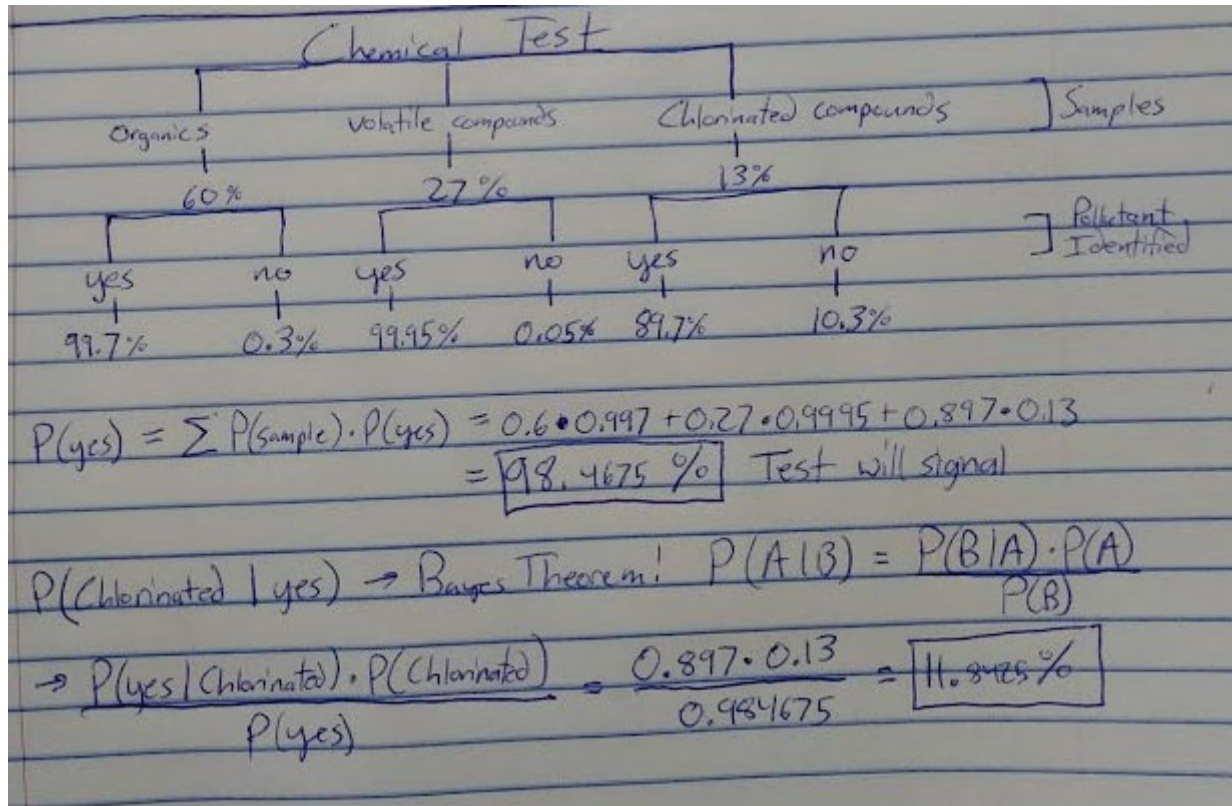 Chemical Test
Organics volatile compounds Chlorinated compounds ] Samples
60% 27% 13%
yes no yes no yes no ] Pollutant Identified
99.7% 0.3% 99.95% 0.05% 89.7% 10.3%
P(yes) = ∑ P(sample)·P(yes) = 0.6•0.997 + 0.27•0.9995 + 0.897•0.13
= 98.4675 % Test will signal
P(Chlorinated | yes) → Bayes Theorem! P(A|B) = P(B|A)·P(A) / P(B)
→ P(yes | Chlorinated)·P(Chlorinated) / P(yes) = 0.897·0.13 / 0.984675 = 11.8425%